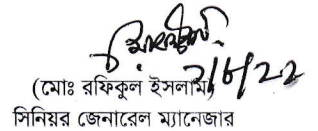 ২/৮/২২
(মোঃ রফিকুল ইসলাম)
সিনিয়র জেনারেল ম্যানেজার